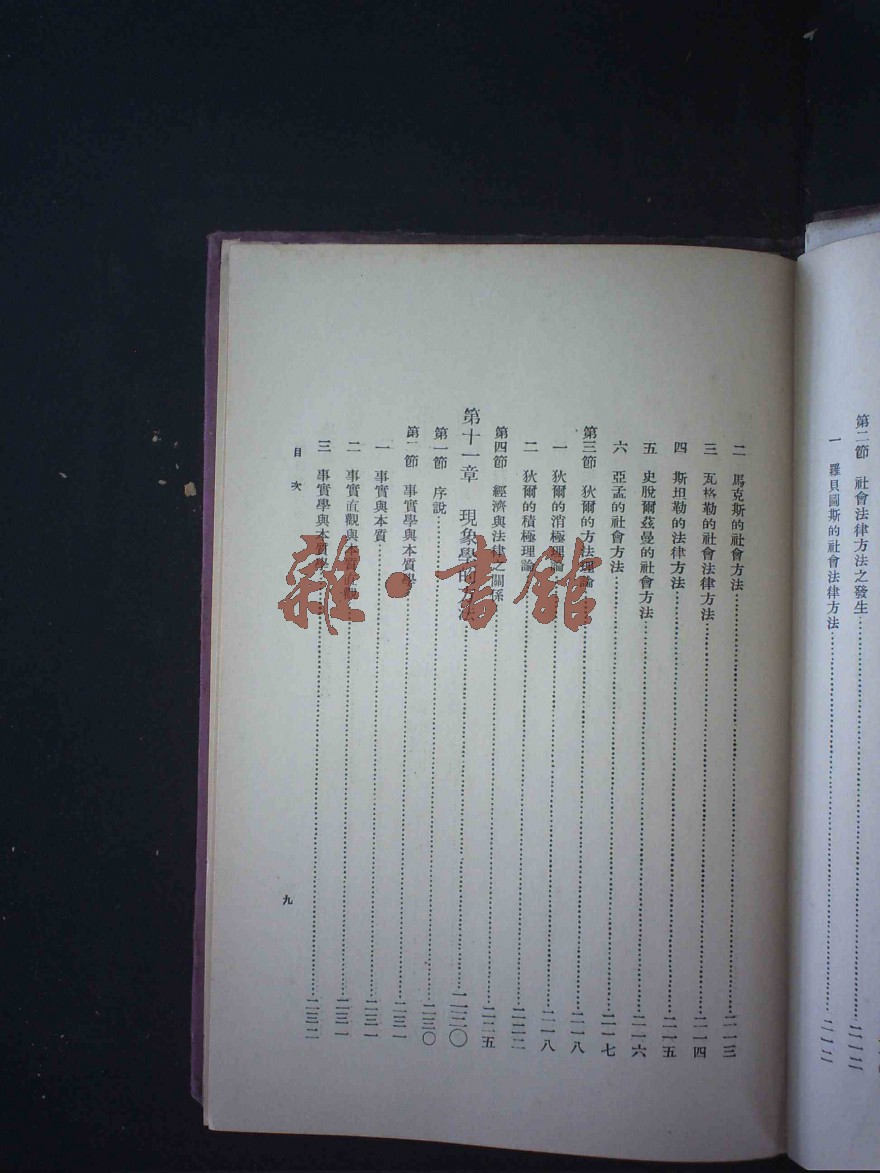 第二節　社會法律方法之發生……二一二
一　羅貝圖斯的社會法律方法……二一二
二　馬克斯的社會方法……二一三
三　瓦格勒的社會法律方法……二一四
四　斯坦勒的法律方法……二一五
五　史脫爾茲曼的社會方法……二一六
六　亞孟的社會方法……二一七
第三節　狄爾的方法理論……二一八
一　狄爾的消極理論……二一八
二　狄爾的積極理論……二二二
第四節　經濟與法律之關係……二二五
第十一章　現象學的方法……二三〇
第一節　序說……二三〇
第二節　事實學與本質學……二三一
一　事實與本質……二三一
二　事實直觀與本質直觀……二三一
三　事實學與本質學……二三二
目次
九
雜·書館